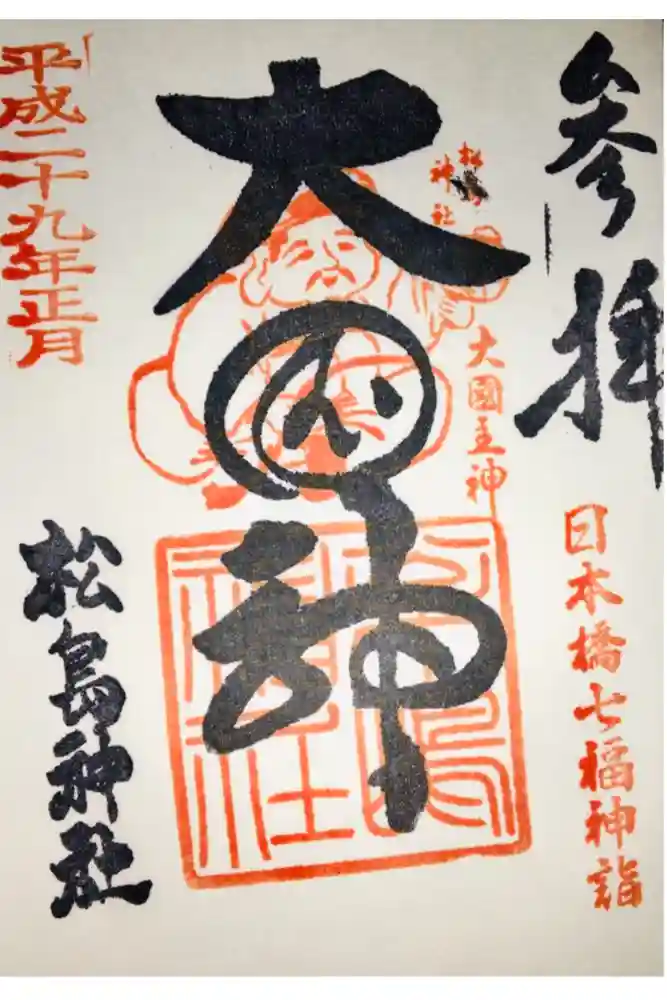 参拝
日本橋七福神詣
松島
神社
大國主神
大国神
平成二十九年正月
松島神社